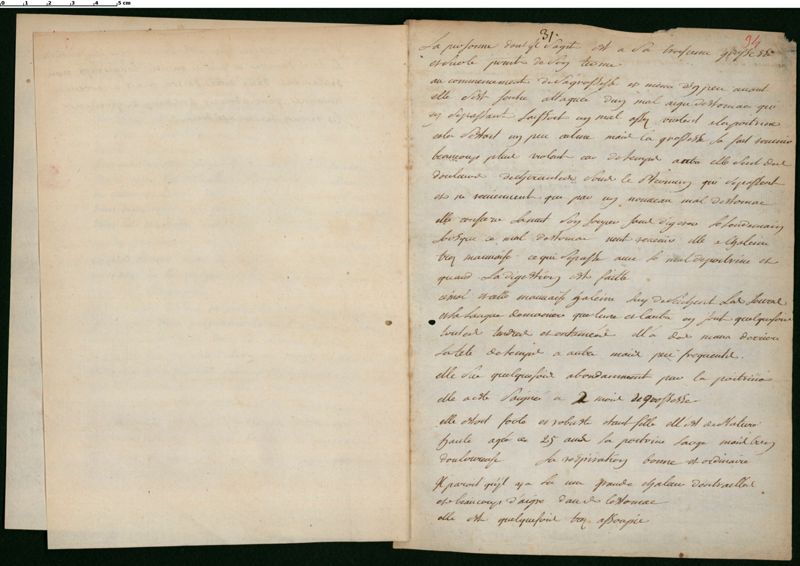 0 1 2 3 4 5 cm
31.
94
La personne dont il s'agit est a sa troisieme grossesse
et sur le point de son terme
au commencement de sa grossesse et meme un peu avant
elle s'est sentie attaquée d'un mal aigu destomac qui
en se passant laissoit un mal assez violent a la poitrine
cela s'estoit un peu calmé mais la grossesse la fait revenir
beaucoup plus violent car de temps a autre elle sent des
douleurs dechirantes sous le sternum qui se passent
et ne reviennent que par un nouveau mal destomac
elle conserve la nuit son souper sans digerer le lendemain
lorsque ce mal destomac veut revenir elle a l'haleine
tres mauvaise ce qui se passe avec le mal de poitrine et
quand la digestion est faite
ce mal et cette mauvaise haleine luy desseichent la bouche
et la langue de maniere que levre et l'autre en sont quelquefois
toutes tendres et entamées elle a des maux de
la tete de temps a autre mais peu frequents.
elle sue quelquefois abondamment par la poitrine
elle a esté saignée a 2 mois de grossesse
elle estoit forte et robuste etant fille elle est de stature
haute agée de 25 ans la poitrine large mais bien
douloureuse la respiration bonne et ordinaire
Il paroit qu'il y a eu une grande chaleur d'entrailles
et beaucoup d'aigre dans lestomac
elle est quelquefois tres assoupie